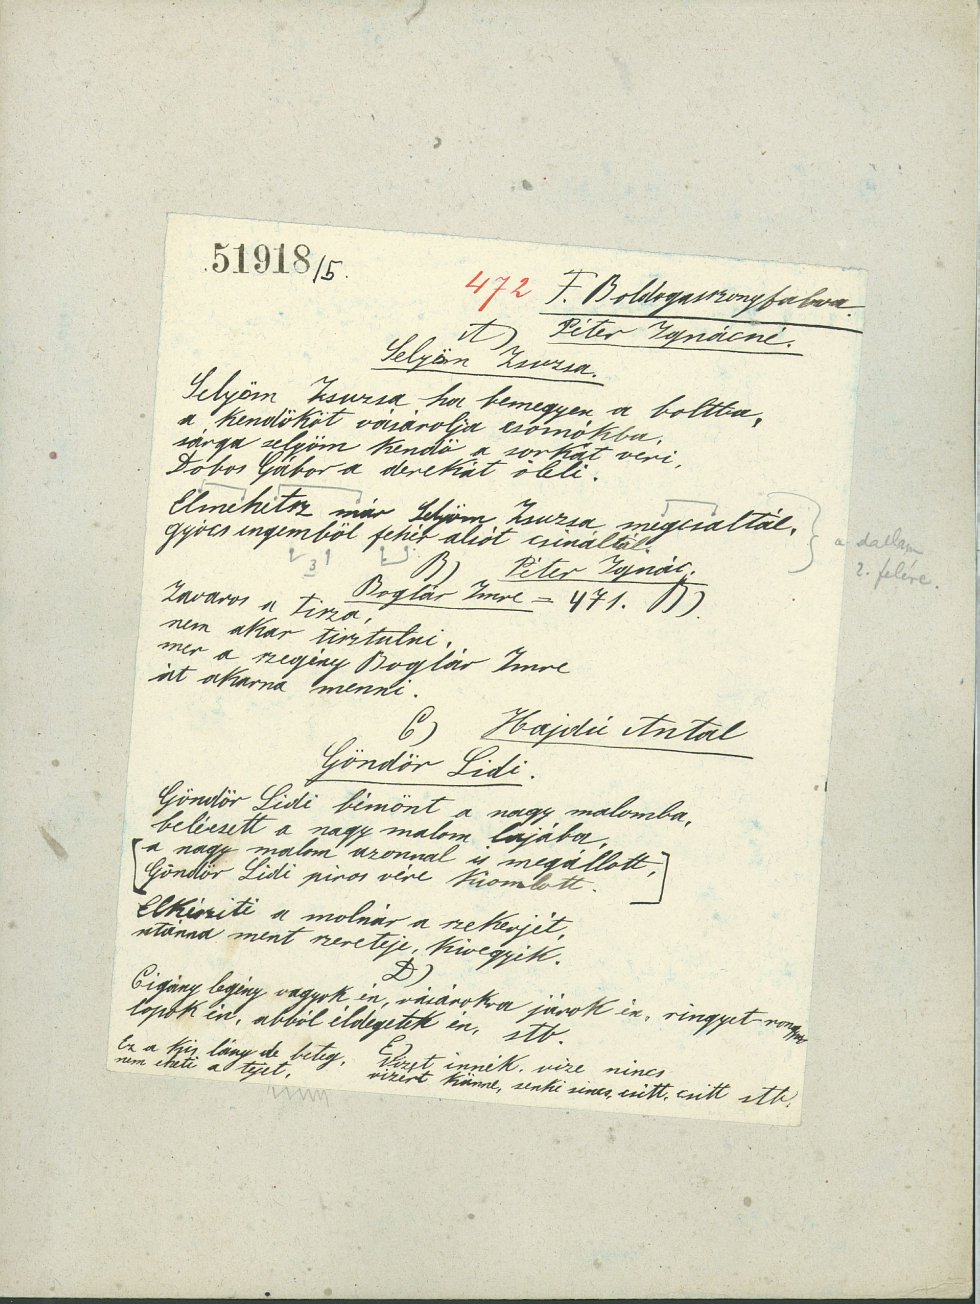 51918/5.
472 F. Boldogasszonyfalva.
A) Péter Ignácné.
Selyöm Zsuzsa.
Selyöm Zsuzsa ha bemegyen a boltba,
a kendőköt vásárolja csomókba,
sárga selyöm kendő a sorkát veri,
Dobos Gábor a derekát öleli.
Elmehetsz már Selyöm Zsuzsa megcsaltál,
gyócs ingemből fehér alsót csináltál.
a dallam
2. felére.
3
B) Péter Ignác.
Boglár Imre = 471. B).
Zavaros a Tisza,
nem akar tisztulni,
mer a szegény Boglár Imre
át akarna menni.
C) Hajdú Antal
Göndör Lidi.
Göndör Lidi bémönt a nagy malomba,
beléesett a nagy malom lajába,
a nagy malom azonnal is megállott,
Göndör Lidi piros vére kiomlott.
Elkésziti a molnár a szekerjét,
utánna ment szereteje, kivegyék.
D)
Cigány legény vagyok én, vásárokra járok én, ringyet-rongyot
lopok én, abból éldegelek én, stb.
E)
Ez a kis lány de beteg, Vizet innék, vize nincs
nem eheti a tejet, vizért künne, senki sincs, csitt, csitt stb.